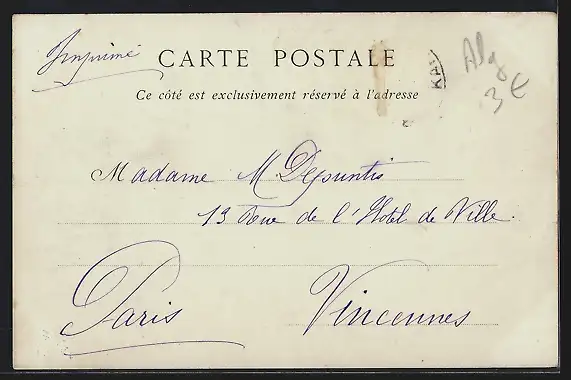 Imprimé
CARTE POSTALE
Alg
3 €
KA
Ce côté est exclusivement réservé à l'adresse
Madame M Depuntis
13 Rue de l'Hotel de Ville.
Paris Vincennes